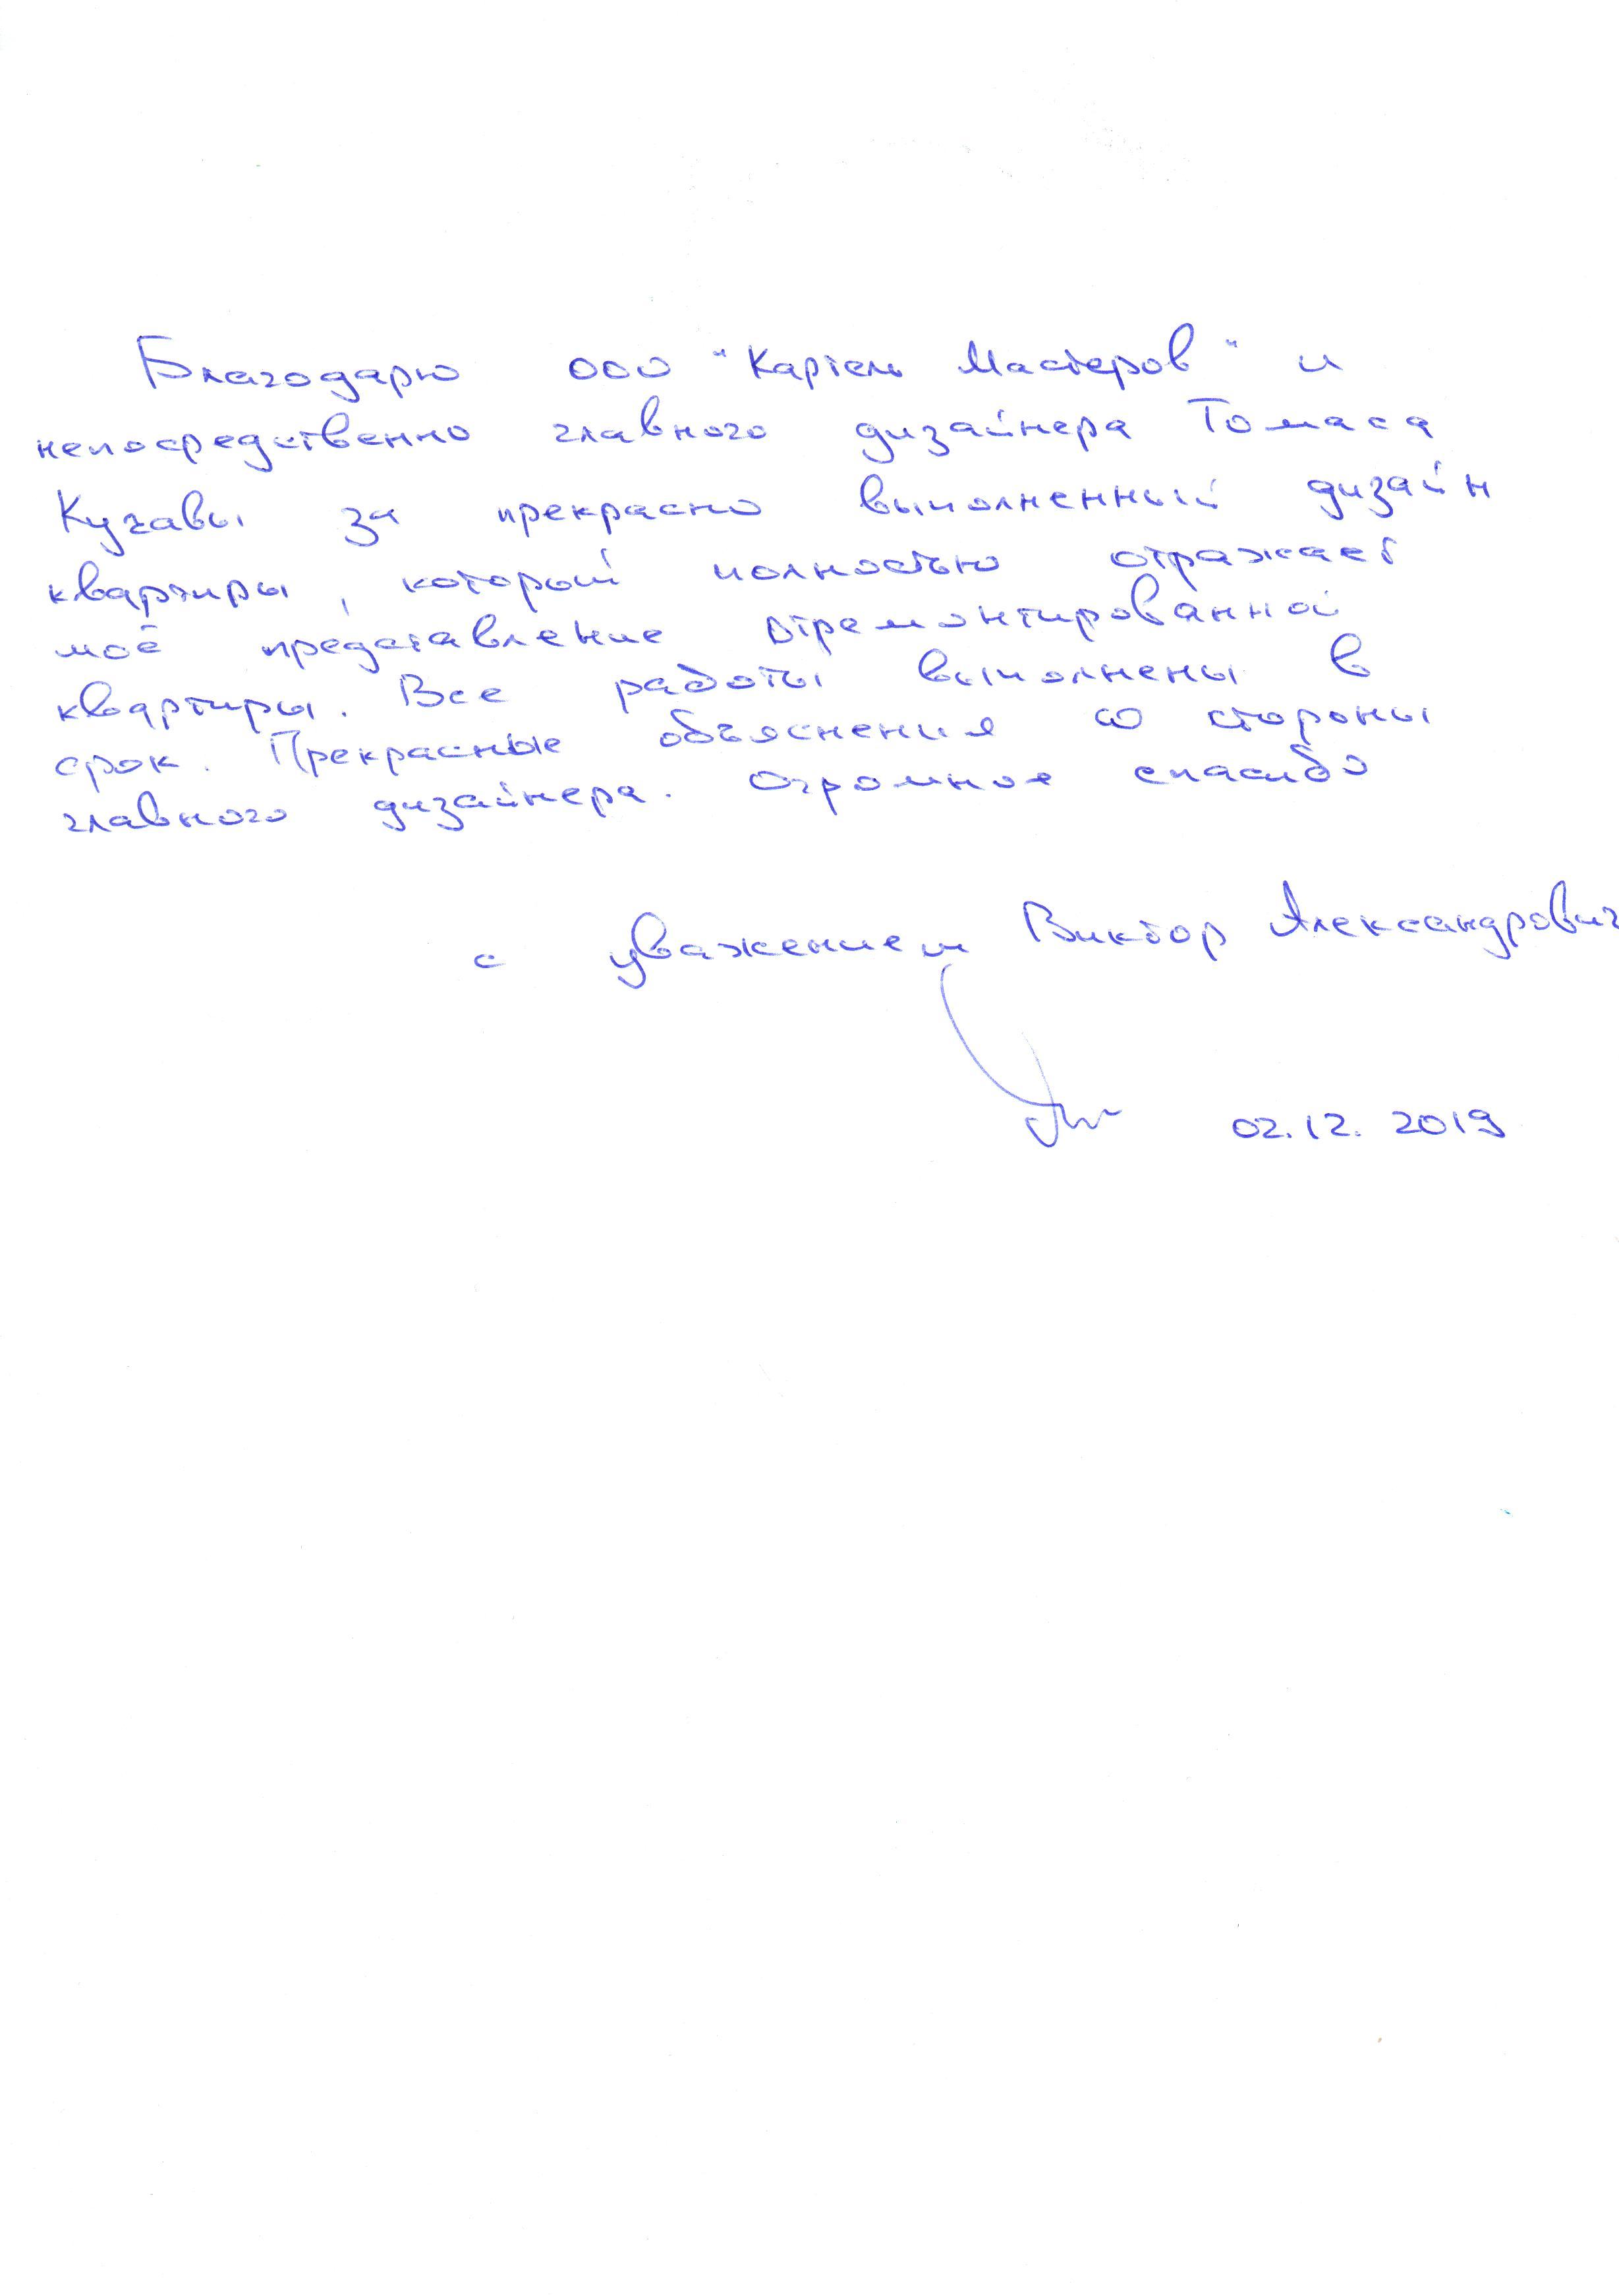 Благодарю ООО "Картель Мастеров" и
непосредственно главного дизайнера Томаса
Кучавы за прекрасно выполненный дизайн
квартиры, который полностью отражает
моё представление отремонтированной
квартиры. Все работы выполнены в
срок. Прекрасные объяснения со стороны
главного дизайнера. Огромное спасибо
с уважением Виктор Александрович
02.12.2019